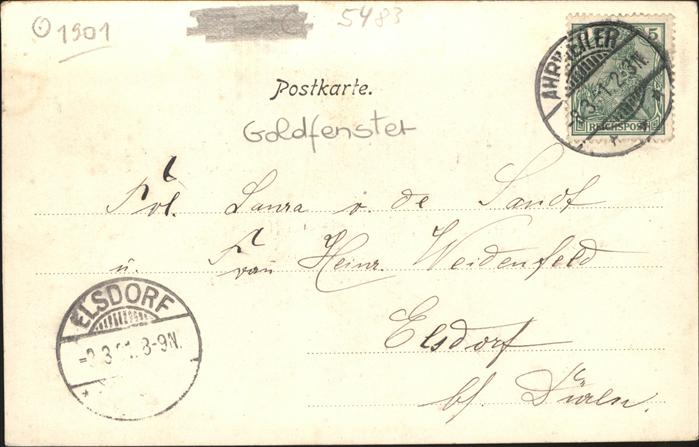 1901
5483
5
AHRWEILER
3. 1. 2-3N
REICHSPOST
Postkarte.
Goldfenster
Frl. Laura v. de Sandt
u. Frau Heinr. Weidenfeld
ELSDORF
3 01. 8-9N.
Elsdorf
bf. Düren.